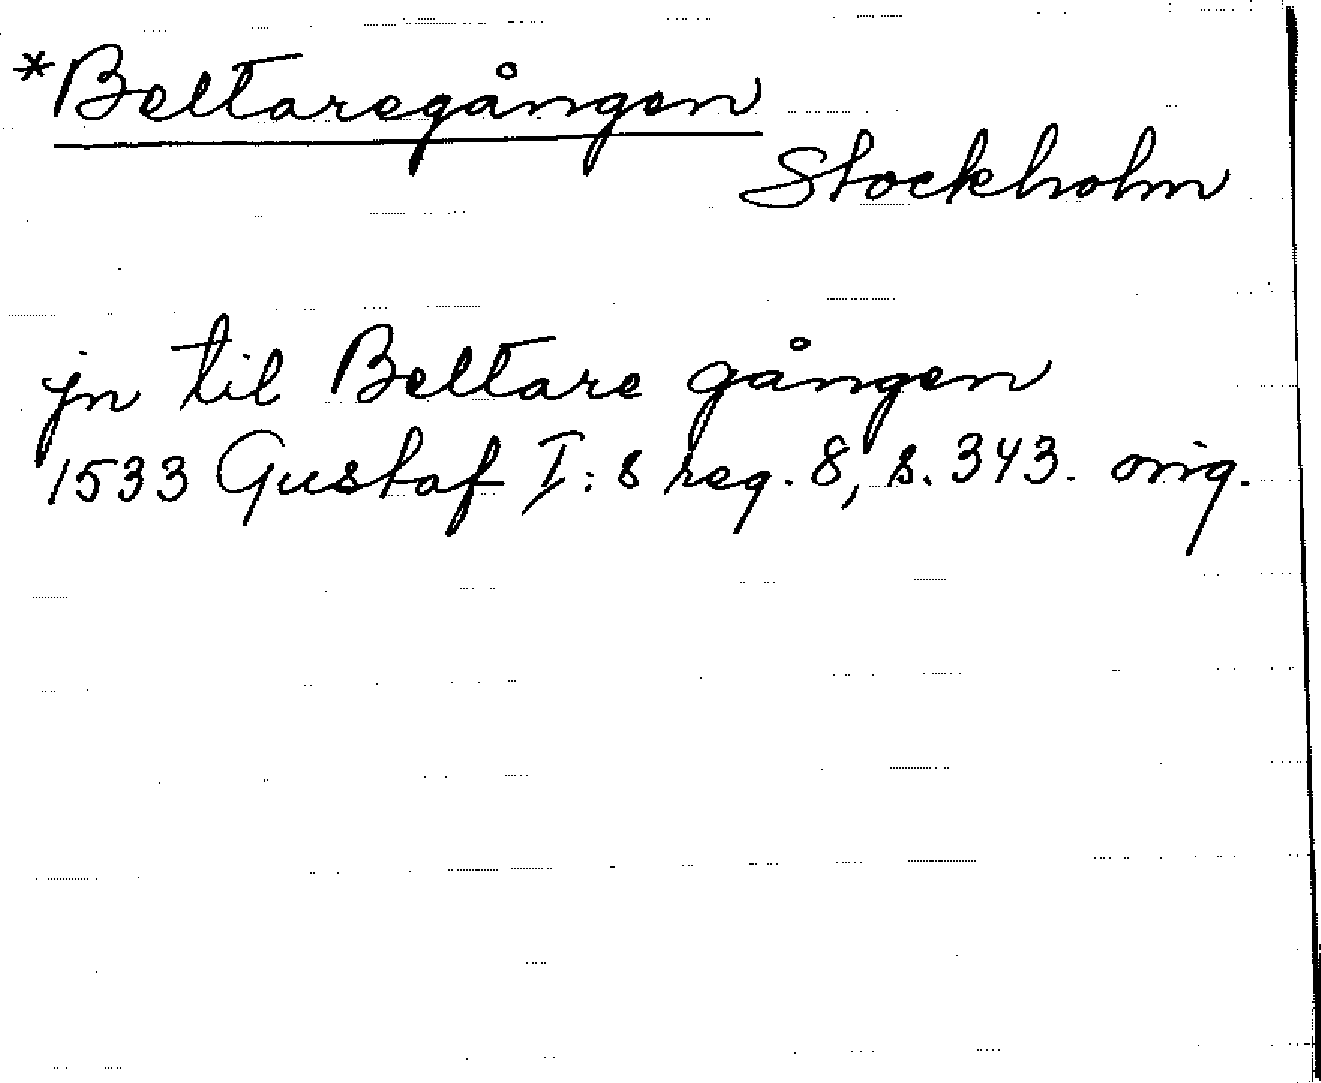 *Beltaregången
Stockholm
jn til Beltare gången
1533 Gustaf I:s reg. 8, s. 343. orig.